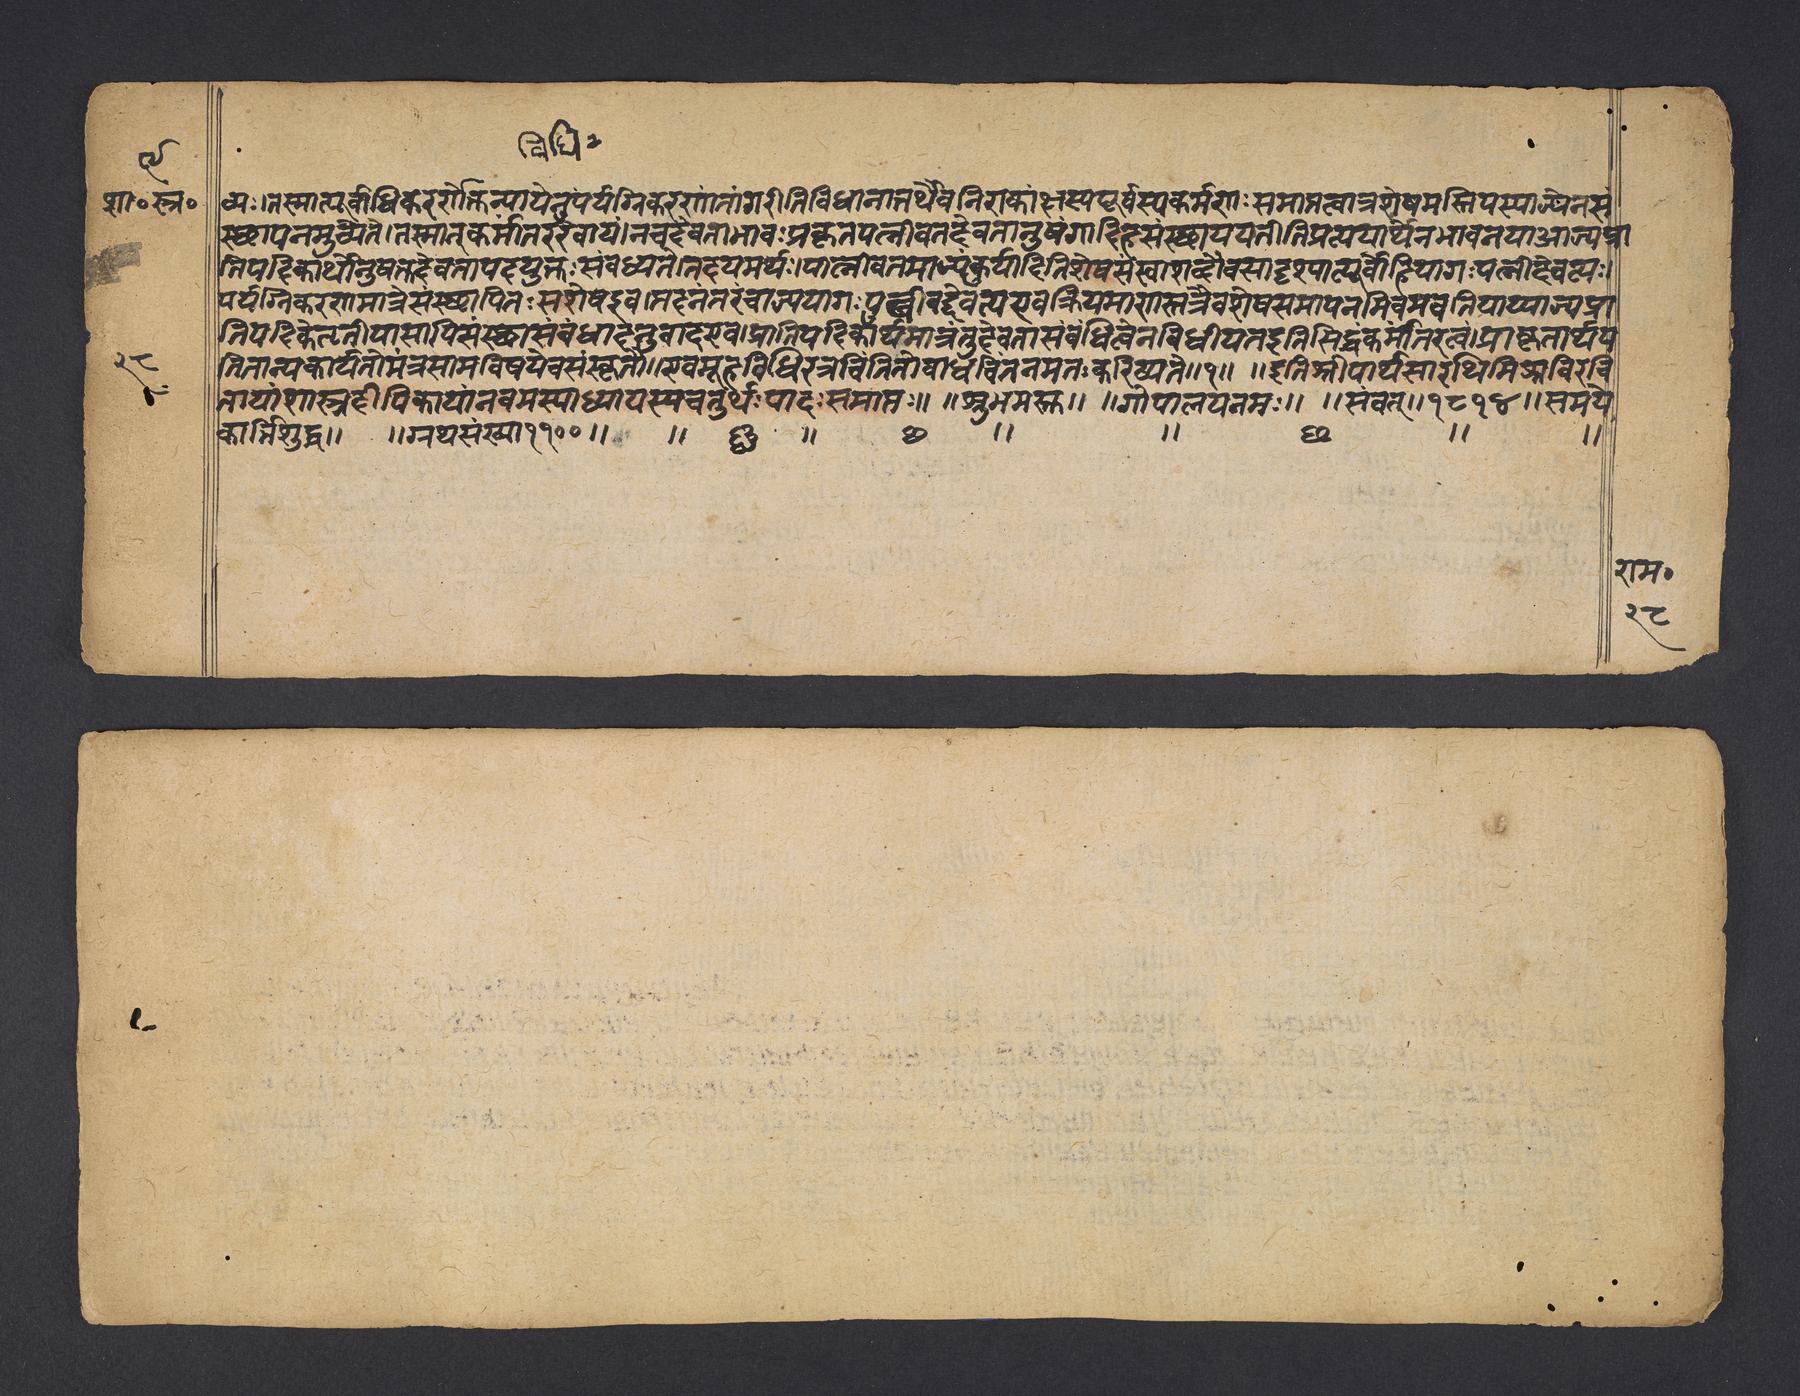 विधि २
९
शा॰स्त्र॰
व्यः।तस्मात्पूर्वाधिकरणोक्तन्यायेनपर्यग्निकरणांतांगरीतिविधानात्तर्थैवनिराकांक्षस्यपूर्वस्यकर्मणः समाप्तत्वान्नशेषमस्तियस्याज्येनसं
स्छापनमुच्येत।तस्मात्कर्मांतरमेवायं।नचदेवताभावःप्रकृतपत्नीवतदेवतानुषंगादिहसंस्छापयतीतिप्रत्ययार्थेनभावनयाआज्यप्रा
तिपदिकार्थोनुषक्तदेवतापदयुक्तःसंबध्यते।तदयमर्थः।पात्नीवतमाज्यंकुर्यादितिशेषसंस्छाशब्दौवसादृश्यात्पूर्वोहियागःपत्नीदेवत्यः।
पर्यग्निकरणमात्रेसंस्छापितःसशेषइव।तदनंतरंचाज्ययागःपत्नीवद्देवत्यएवक्रियमाणस्तत्रैवशेषसमापनमिवभवतियाप्याज्यप्रा
तिपदिकेतृतीयासापिसंस्छासंबंधादनुवादएव।प्रातिपदिकार्थमात्रंतुदेवतासंबंधित्वेनविधीयतइतिसिद्धंकर्मांतरत्वं।प्राकृतार्थप
तितान्यकार्यतोमंत्रसामविषयेचसंस्कृतौ॥एवमूहविधिरत्रचिंतितोबाधचिंतनमतःकरिष्यते॥१॥ ॥इतिश्रीपार्थसारथिमिश्रविरचि
तायांशास्त्रदीपिकायांनवमस्याध्यायस्यचतुर्थःपादःसमाप्तः॥ ॥शुभमस्तु॥ ॥गोपालयनमः॥ ॥संवत्॥१८१४॥समये
कार्त्तिशुद्ध॥ ॥ग्नथसंख्या११००॥ ॥ छ ॥ छ ॥ ॥ छ ॥ ॥
२८
राम॰
२८